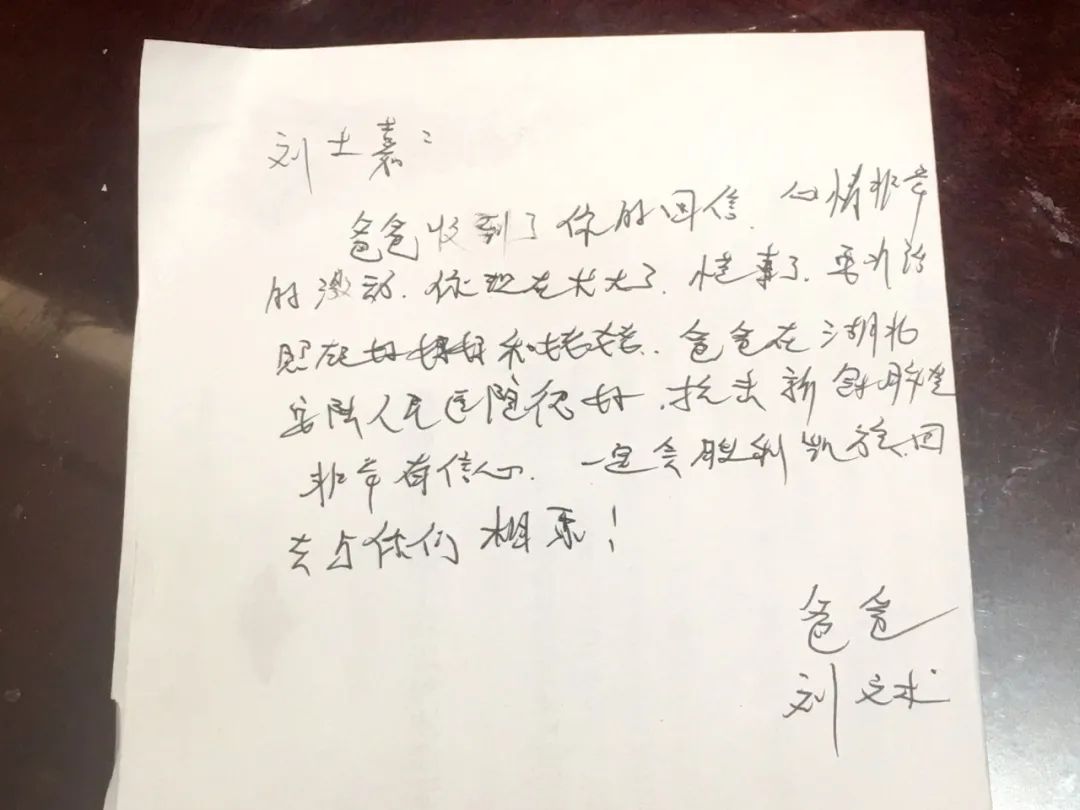 刘士嘉：
爸爸收到了你的回信，心情非常
的激动，你现在长大了，懂事了，要好
照顾好妈妈和姥姥，爸爸在湖北
安陆人民医院很好，抗击新冠肺炎
非常有信心，一定会胜利凯旋，回
去与你们相聚！
爸爸
刘文术